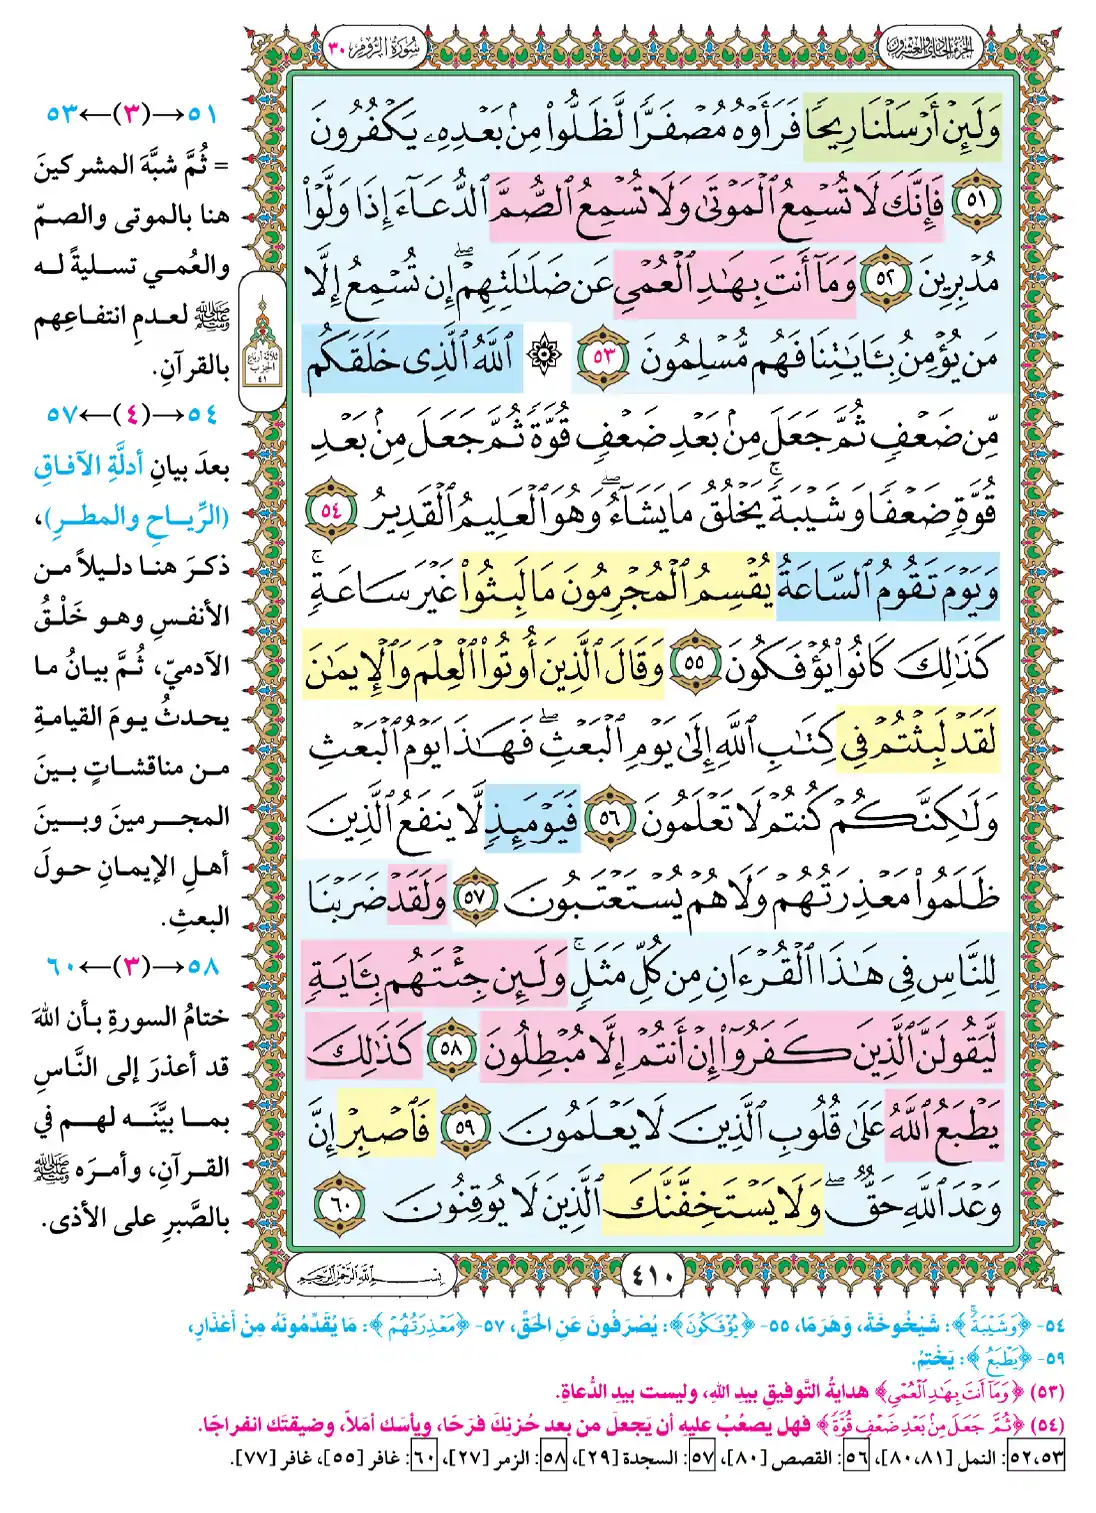 الجزء الحادي والعشرون
سورة الروم ٣٠
وَلَئِنْ أَرْسَلْنَا رِيحًا فَرَأَوْهُ مُصْفَرًّا لَّظَلُّوا۟ مِنۢ بَعْدِهِۦ يَكْفُرُونَ
٥١ فَإِنَّكَ لَا تُسْمِعُ ٱلْمَوْتَىٰ وَلَا تُسْمِعُ ٱلصُّمَّ ٱلدُّعَآءَ إِذَا وَلَّوْا۟
مُدْبِرِينَ ٥٢ وَمَآ أَنتَ بِهَٰدِ ٱلْعُمْىِ عَن ضَلَٰلَتِهِمْ ۖ إِن تُسْمِعُ إِلَّا
مَن يُؤْمِنُ بِـَٔايَٰتِنَا فَهُم مُّسْلِمُونَ ٥٣ ۞ ٱللَّهُ ٱلَّذِى خَلَقَكُم
مِّن ضَعْفٍ ثُمَّ جَعَلَ مِنۢ بَعْدِ ضَعْفٍ قُوَّةً ثُمَّ جَعَلَ مِنۢ بَعْدِ
قُوَّةٍ ضَعْفًا وَشَيْبَةً ۚ يَخْلُقُ مَا يَشَآءُ ۖ وَهُوَ ٱلْعَلِيمُ ٱلْقَدِيرُ ٥٤
وَيَوْمَ تَقُومُ ٱلسَّاعَةُ يُقْسِمُ ٱلْمُجْرِمُونَ مَا لَبِثُوا۟ غَيْرَ سَاعَةٍ ۚ
كَذَٰلِكَ كَانُوا۟ يُؤْفَكُونَ ٥٥ وَقَالَ ٱلَّذِينَ أُوتُوا۟ ٱلْعِلْمَ وَٱلْإِيمَٰنَ
لَقَدْ لَبِثْتُمْ فِى كِتَٰبِ ٱللَّهِ إِلَىٰ يَوْمِ ٱلْبَعْثِ ۖ فَهَٰذَا يَوْمُ ٱلْبَعْثِ
وَلَٰكِنَّكُمْ كُنتُمْ لَا تَعْلَمُونَ ٥٦ فَيَوْمَئِذٍ لَّا يَنفَعُ ٱلَّذِينَ
ظَلَمُوا۟ مَعْذِرَتُهُمْ وَلَا هُمْ يُسْتَعْتَبُونَ ٥٧ وَلَقَدْ ضَرَبْنَا
لِلنَّاسِ فِى هَٰذَا ٱلْقُرْءَانِ مِن كُلِّ مَثَلٍ ۚ وَلَئِن جِئْتَهُم بِـَٔايَةٍ
لَّيَقُولَنَّ ٱلَّذِينَ كَفَرُوٓا۟ إِنْ أَنتُمْ إِلَّا مُبْطِلُونَ ٥٨ كَذَٰلِكَ
يَطْبَعُ ٱللَّهُ عَلَىٰ قُلُوبِ ٱلَّذِينَ لَا يَعْلَمُونَ ٥٩ فَٱصْبِرْ إِنَّ
وَعْدَ ٱللَّهِ حَقٌّ ۖ وَلَا يَسْتَخِفَّنَّكَ ٱلَّذِينَ لَا يُوقِنُونَ ٦٠
ثلاثة أرباع
الحزب
٤١
٥١→(٣)←٥٣
= ثُمَّ شبَّهَ المشركينَ
هنا بالموتى والصمّ
والعُمي تسليةً له
ﷺ لعدمِ انتفاعِهم
بالقرآنِ.
٥٤→(٤)←٥٧
بعدَ بيانِ أدلَّةِ الآفاقِ
(الرِّياحِ والمطرِ)،
ذكرَ هنا دليلاً من
الأنفسِ وهو خَلْقُ
الآدميّ، ثُمَّ بيانُ ما
يحدثُ يومَ القيامةِ
من مناقشاتٍ بينَ
المجرمينَ وبينَ
أهلِ الإيمانِ حولَ
البعثِ.
٥٨→(٣)←٦٠
ختامُ السورةِ بأن اللهَ
قد أعذرَ إلى النَّاسِ
بما بيَّنَه لهم في
القرآنِ، وأمرَه ﷺ
بالصَّبرِ على الأذى.
٤١٠
بسم الله الرحمن الرحيم
٥٤- ﴿وَشَيْبَةً﴾: شَيْخُوخَةً، وَهَرَمًا، ٥٥- ﴿يُؤْفَكُونَ﴾: يُصْرَفُونَ عَنِ الحَقِّ، ٥٧- ﴿مَعْذِرَتُهُمْ﴾: مَا يُقَدِّمُونَهُ مِنْ أَعْذَارٍ،
٥٩- ﴿يَطْبَعُ﴾: يَخْتِمُ.
(٥٣) ﴿وَمَآ أَنتَ بِهَٰدِ ٱلْعُمْىِ﴾ هدايةُ التَّوفيقِ بيدِ اللهِ، وليست بيدِ الدُّعاةِ.
(٥٤) ﴿ثُمَّ جَعَلَ مِنۢ بَعْدِ ضَعْفٍ قُوَّةً﴾ فهل يصعُبُ عليه أن يَجعلَ من بعد حُزنِكَ فرَحًا، ويأسِكَ أمَلاً، وضيقتِك انفراجًا.
٥٢،٥٣: النمل [٨٠،٨١]، ٥٦: القصص [٨٠]، ٥٧: السجدة [٢٩]، ٥٨: الزمر [٢٧]، ٦٠: غافر [٥٥]، غافر [٧٧].